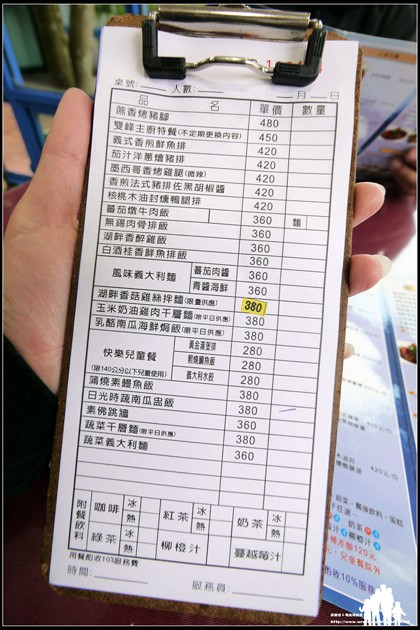 桌號: 人數: 月 日
品名 單價 數量
蔗香烤豬腳 480
雙峰主廚特餐(不定期更換內容) 450
義式香煎鮮魚排 420
茄汁洋蔥燴豬排 420
墨西哥香烤雞腿(微辣) 420
香煎法式豬排佐黑胡椒醬 420
核桃木油封燻鴨腿排 420
蕃茄燉牛肉飯 360 麵
無錫肉骨排飯 360
湖畔香醉雞飯 360
白酒桂香鮮魚排飯 360
風味義大利麵 蕃茄肉醬 360
青醬海鮮 360
湖畔香菇雞絲拌麵(限量供應) 380
玉米奶油雞肉千層麵(限平日供應) 380
乳酪南瓜海鮮焗飯(限平日供應) 380
快樂兒童餐 (限140公分以下兒童使用) 黃金漢堡排 280
鯛魚飯 280
義大利水餃 280
蒲燒素鰻魚飯 380
日光時蔬南瓜盅飯 380
素佛跳牆 380
蔬菜千層麵(限平日供應) 360
蔬菜義大利麵 360
附餐飲料 咖啡 冰 熱 紅茶 冰 熱 奶茶 冰 熱
綠茶 冰 熱 柳橙汁 蔓越莓汁
用餐酌收10%服務費
時間: 服務員: